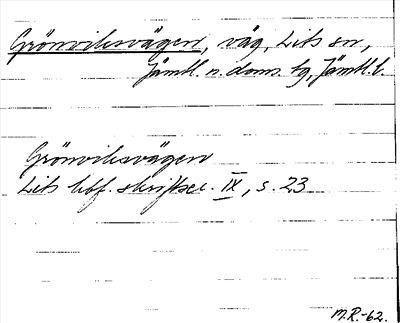 Grönviksvägen, väg, Lits sn,
Jämtl. n. doms. tg, Jämtl. l.
Grönviksvägen
Lits hbf. skriftser. IX, s. 23
M.R.-62.